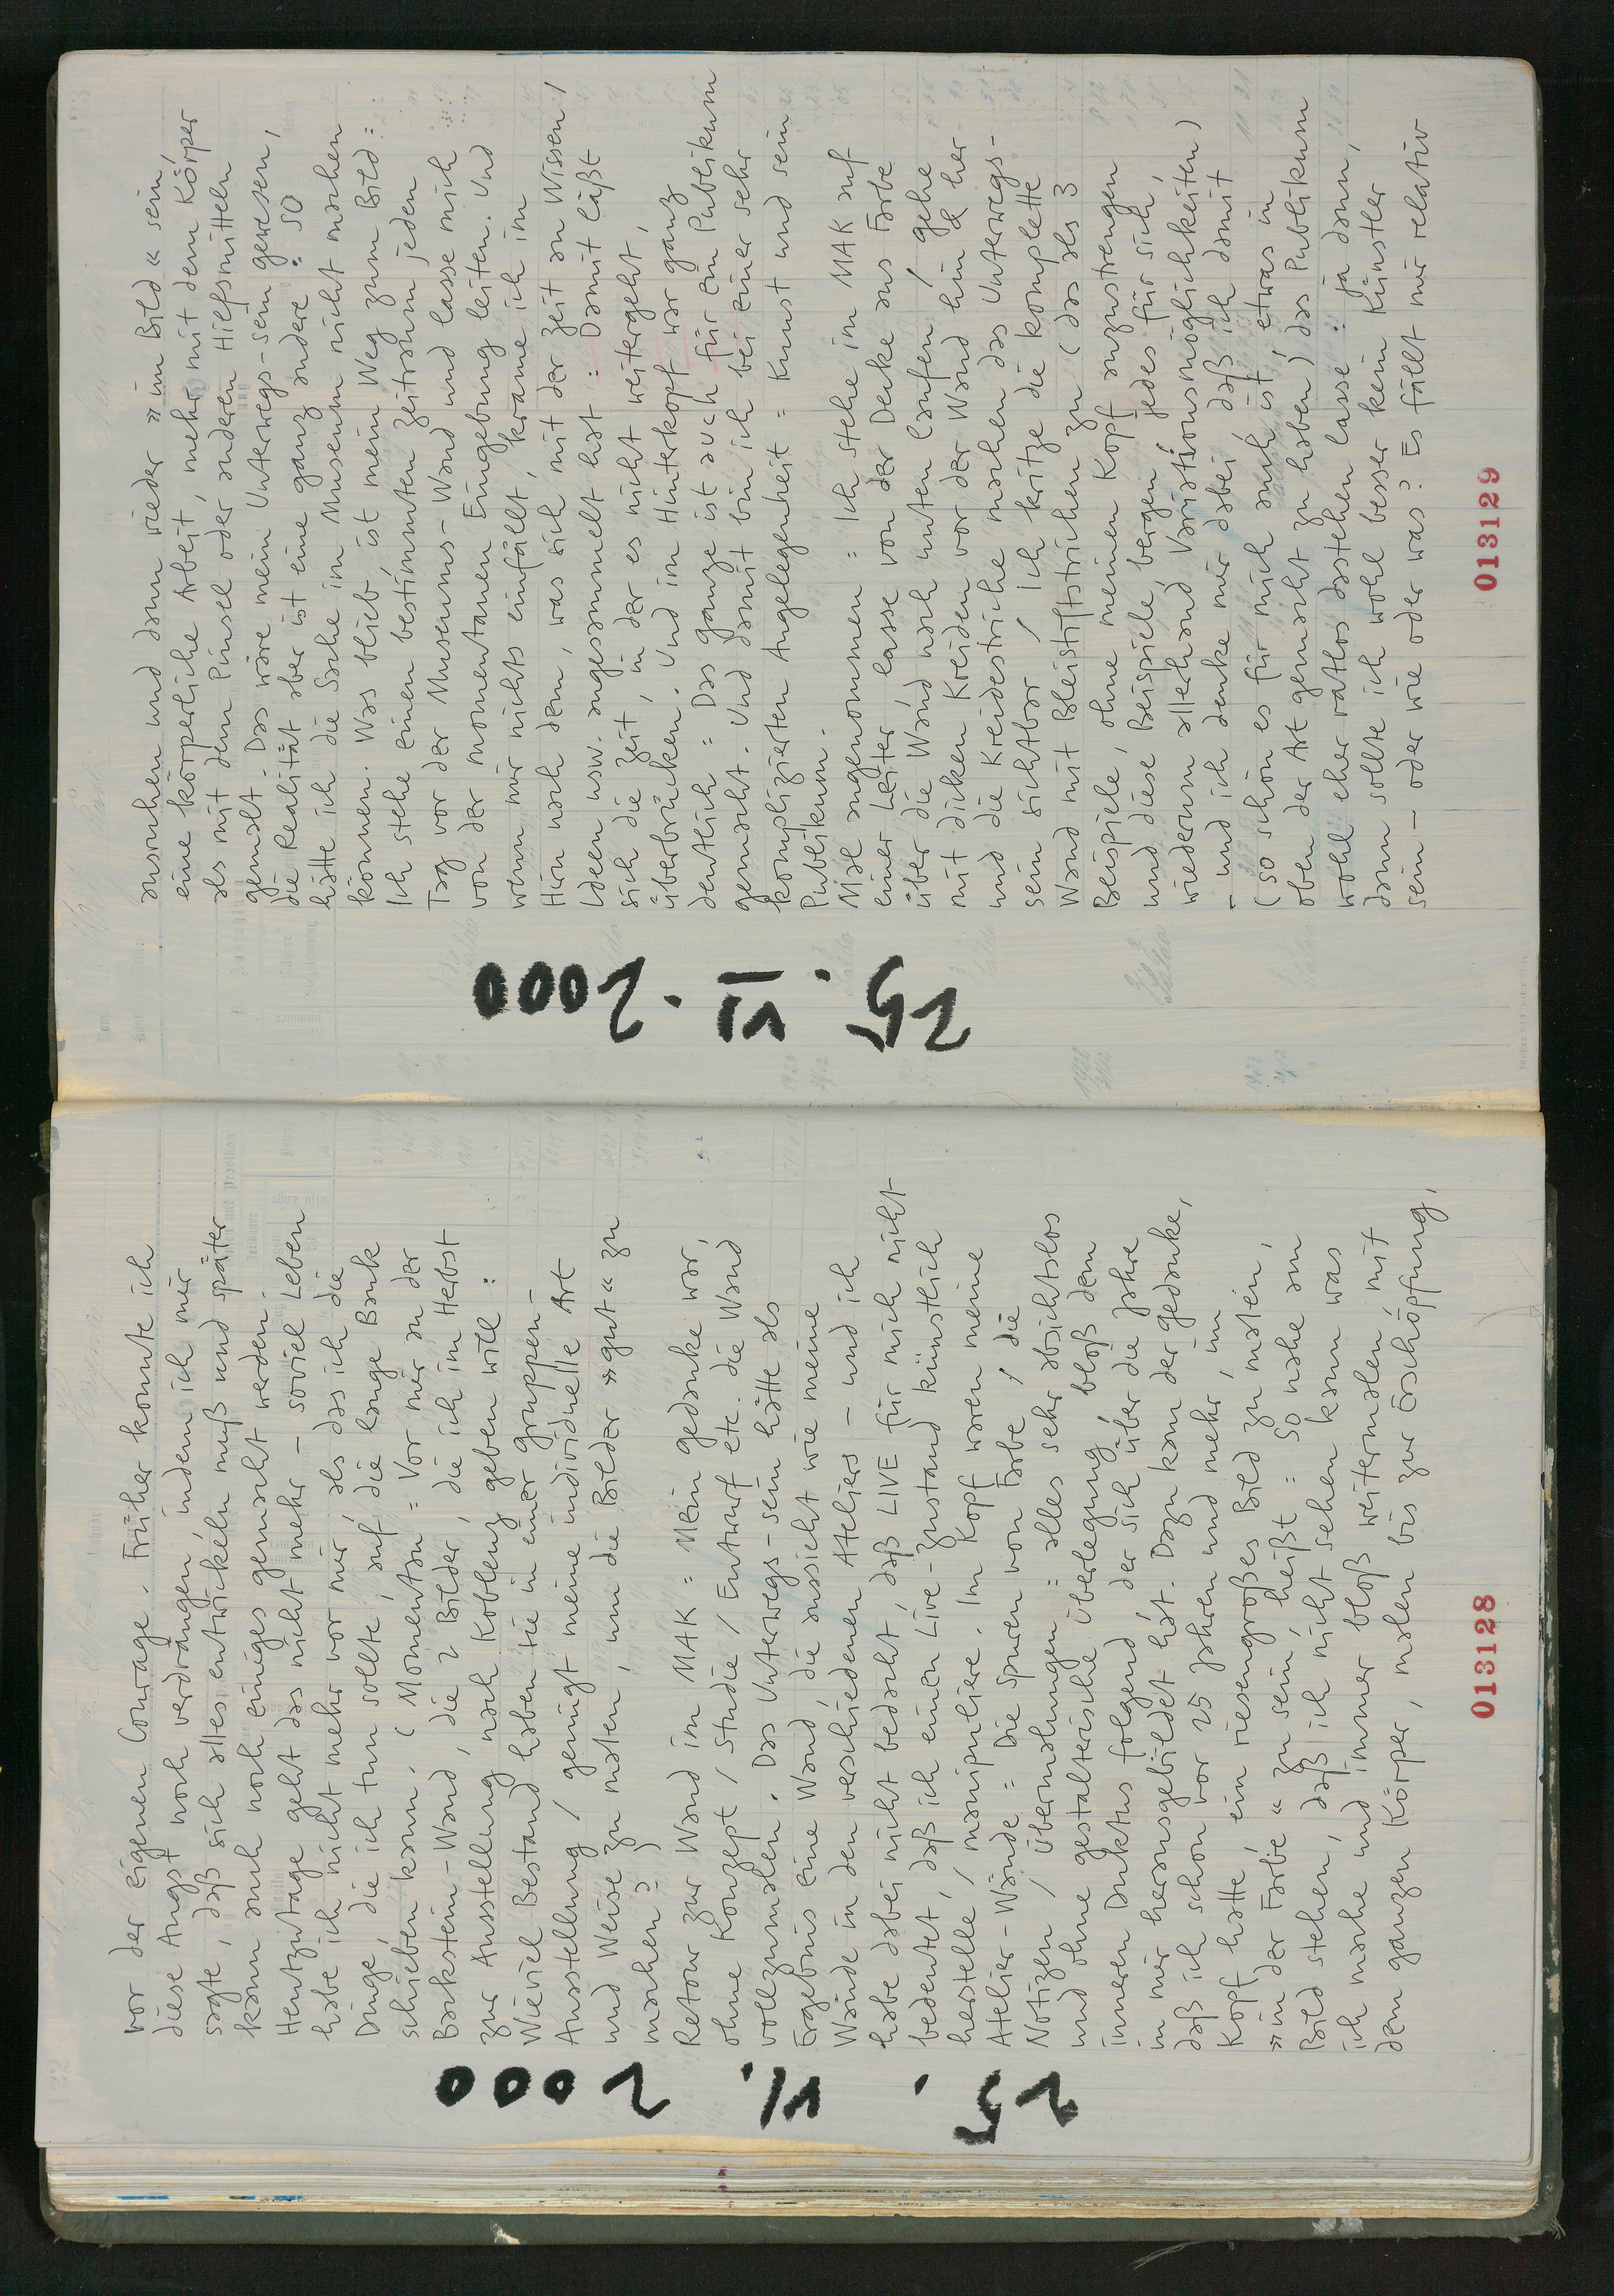 25. VI. 2000
vor der eigenen Courage. Früher konnte ich
diese Angst noch verdrängen, indem ich mir
sagte, daß sich alles entwickeln muß und später
kann auch noch einiges gemacht werden.
Heutzutage geht das nicht mehr – soviel Leben
habe ich nicht mehr vor mir, als das ich die
Dinge, die ich tun sollte, auf die lange Bank
schieben kann. (Momentan = Vor mir an der
Backstein-Wand, die 2 Bilder, die ich im Herbst
zur Ausstellung nach Koblenz geben will :
Wieviel Bestand haben sie in einer Gruppen-
Ausstellung / genügt meine individuelle Art
und Weise zu malen, um die Bilder »gut« zu
machen?)
Retour zur Wand im MAK = Mein Gedanke war,
ohne Konzept / Studie / Entwurf etc. die Wand
vollzumalen. Das Unterwegs-sein hätte als
Ergebnis eine Wand, die aussieht wie meine
Wände in den verschiedenen Ateliers – und ich
habe dabei nicht bedacht, daß LIVE für mich nicht
bedeutet, daß ich einen Live-Zustand künstlich
herstelle / manipuliere. Im Kopf waren meine
Atelier-Wände = Die Spuren von Farbe / die
Notizen / Übermalungen = alles sehr absichtslos
und ohne gestalterische Überlegung, bloß dem
inneren Duktus folgend, der sich über die Jahre
in mir herausgebildet hat. Dazu kam der Gedanke,
daß ich schon vor 25 Jahren und mehr, im
Kopf hatte, ein riesengroßes Bild zu malen,
»in der Farbe« zu sein, heißt = so nahe am
Bild stehen, daß ich nicht sehen kann was
ich mache und immer bloß weitermalen, mit
dem ganzen Körper, malen bis zur Erschöpfung,
013128
25. VI. 2000
ausruhen und dann wieder »im Bild« sein,
eine körperliche Arbeit, mehr mit dem Körper
als mit dem Pinsel oder anderen Hilfsmitteln
gemalt. Das wäre mein Unterwegs-sein gewesen,
die Realität aber ist eine ganz andere : so
hätte ich die Sache im Museum nicht machen
können. Was blieb, ist mein Weg zum Bild :
Ich stehe einen bestimmten Zeitraum jeden
Tag vor der Museums-Wand und lasse mich
von der momentanen Eingebung leiten. Und
wenn mir nichts einfällt, krame ich im
Hirn nach dem, was sich mit der Zeit an Wissen /
Ideen usw. angesammelt hat : Damit läßt
sich die Zeit, in der es nicht weitergeht,
überbrücken. Und im Hinterkopf war ganz
deutlich = Das ganze ist auch für ein Publikum
gemacht. Und damit bin ich bei einer sehr
komplizierten Angelegenheit = Kunst und sein
Publikum.
Mal angenommen = Ich stehe im MAK auf
einer Leiter, lasse von der Decke aus Farbe
über die Wand nach unten laufen / gehe
mit dicken Kreiden vor der Wand hin & her
und die Kreidestriche machen das Unterwegs-
sein sichtbar / Ich kritze die komplette
Wand mit Bleistiftstrichen zu (das als 3
Beispiele, ohne meinen Kopf anzustrengen
und diese Beispiele bergen, jedes für sich,
wiederum allerhand Variationsmöglichkeiten)
– und ich denke mir dabei, daß ich damit
(so schön es für mich auch ist, etwas in
oben der Art gemacht zu haben) das Publikum
wohl eher ratlos dastehen lasse : ja dann,
dann sollte ich wohl besser kein Künstler
sein – oder wie oder was? Es fällt mir relativ
013129